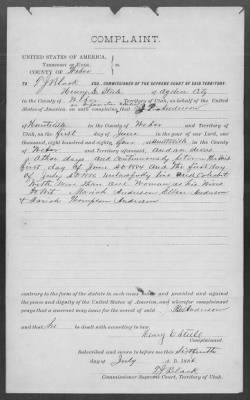 COMPLAINT.
UNITED STATES OF AMERICA,
TERRITORY OF UTAH,
COUNTY OF Weber
TO J Black ESQ., COMMISSIONER OF THE SUPREME COURT OF SAID TERRITORY.
Henry E Steele of Ogden City
in the County of Weber Territory of Utah, on behalf of the United
States of America, on complaint, that Anderson
of Huntsville in the County of Weber and Territory of
Utah, on the first day of June in the year of our Lord, one
thousand eight hundred and eighty four at Huntsville in the County of
Weber and Territory aforesaid, and on divers
other days and Continuously between the said
first day of June A D 1884 and the first day
of July A D 1886 unlawfully live and Cohabit
With More than one Woman as his Wives
to Wit Anderson Ellen Anderson
& Thompson Anderson
contrary to the form of the statute in such case made and provided and against
the peace and dignity of the United States of America, and wherefor complainant prays
that a warrant may issue for the arrest of said Anderson
and that he be dealt with according to law.
Henry E Steele
Complainant.
Subscribed and sworn to before me this Sixteenth
day of July A. D. 1886
J Black
Commissioner Supreme Court, Territory of Utah.